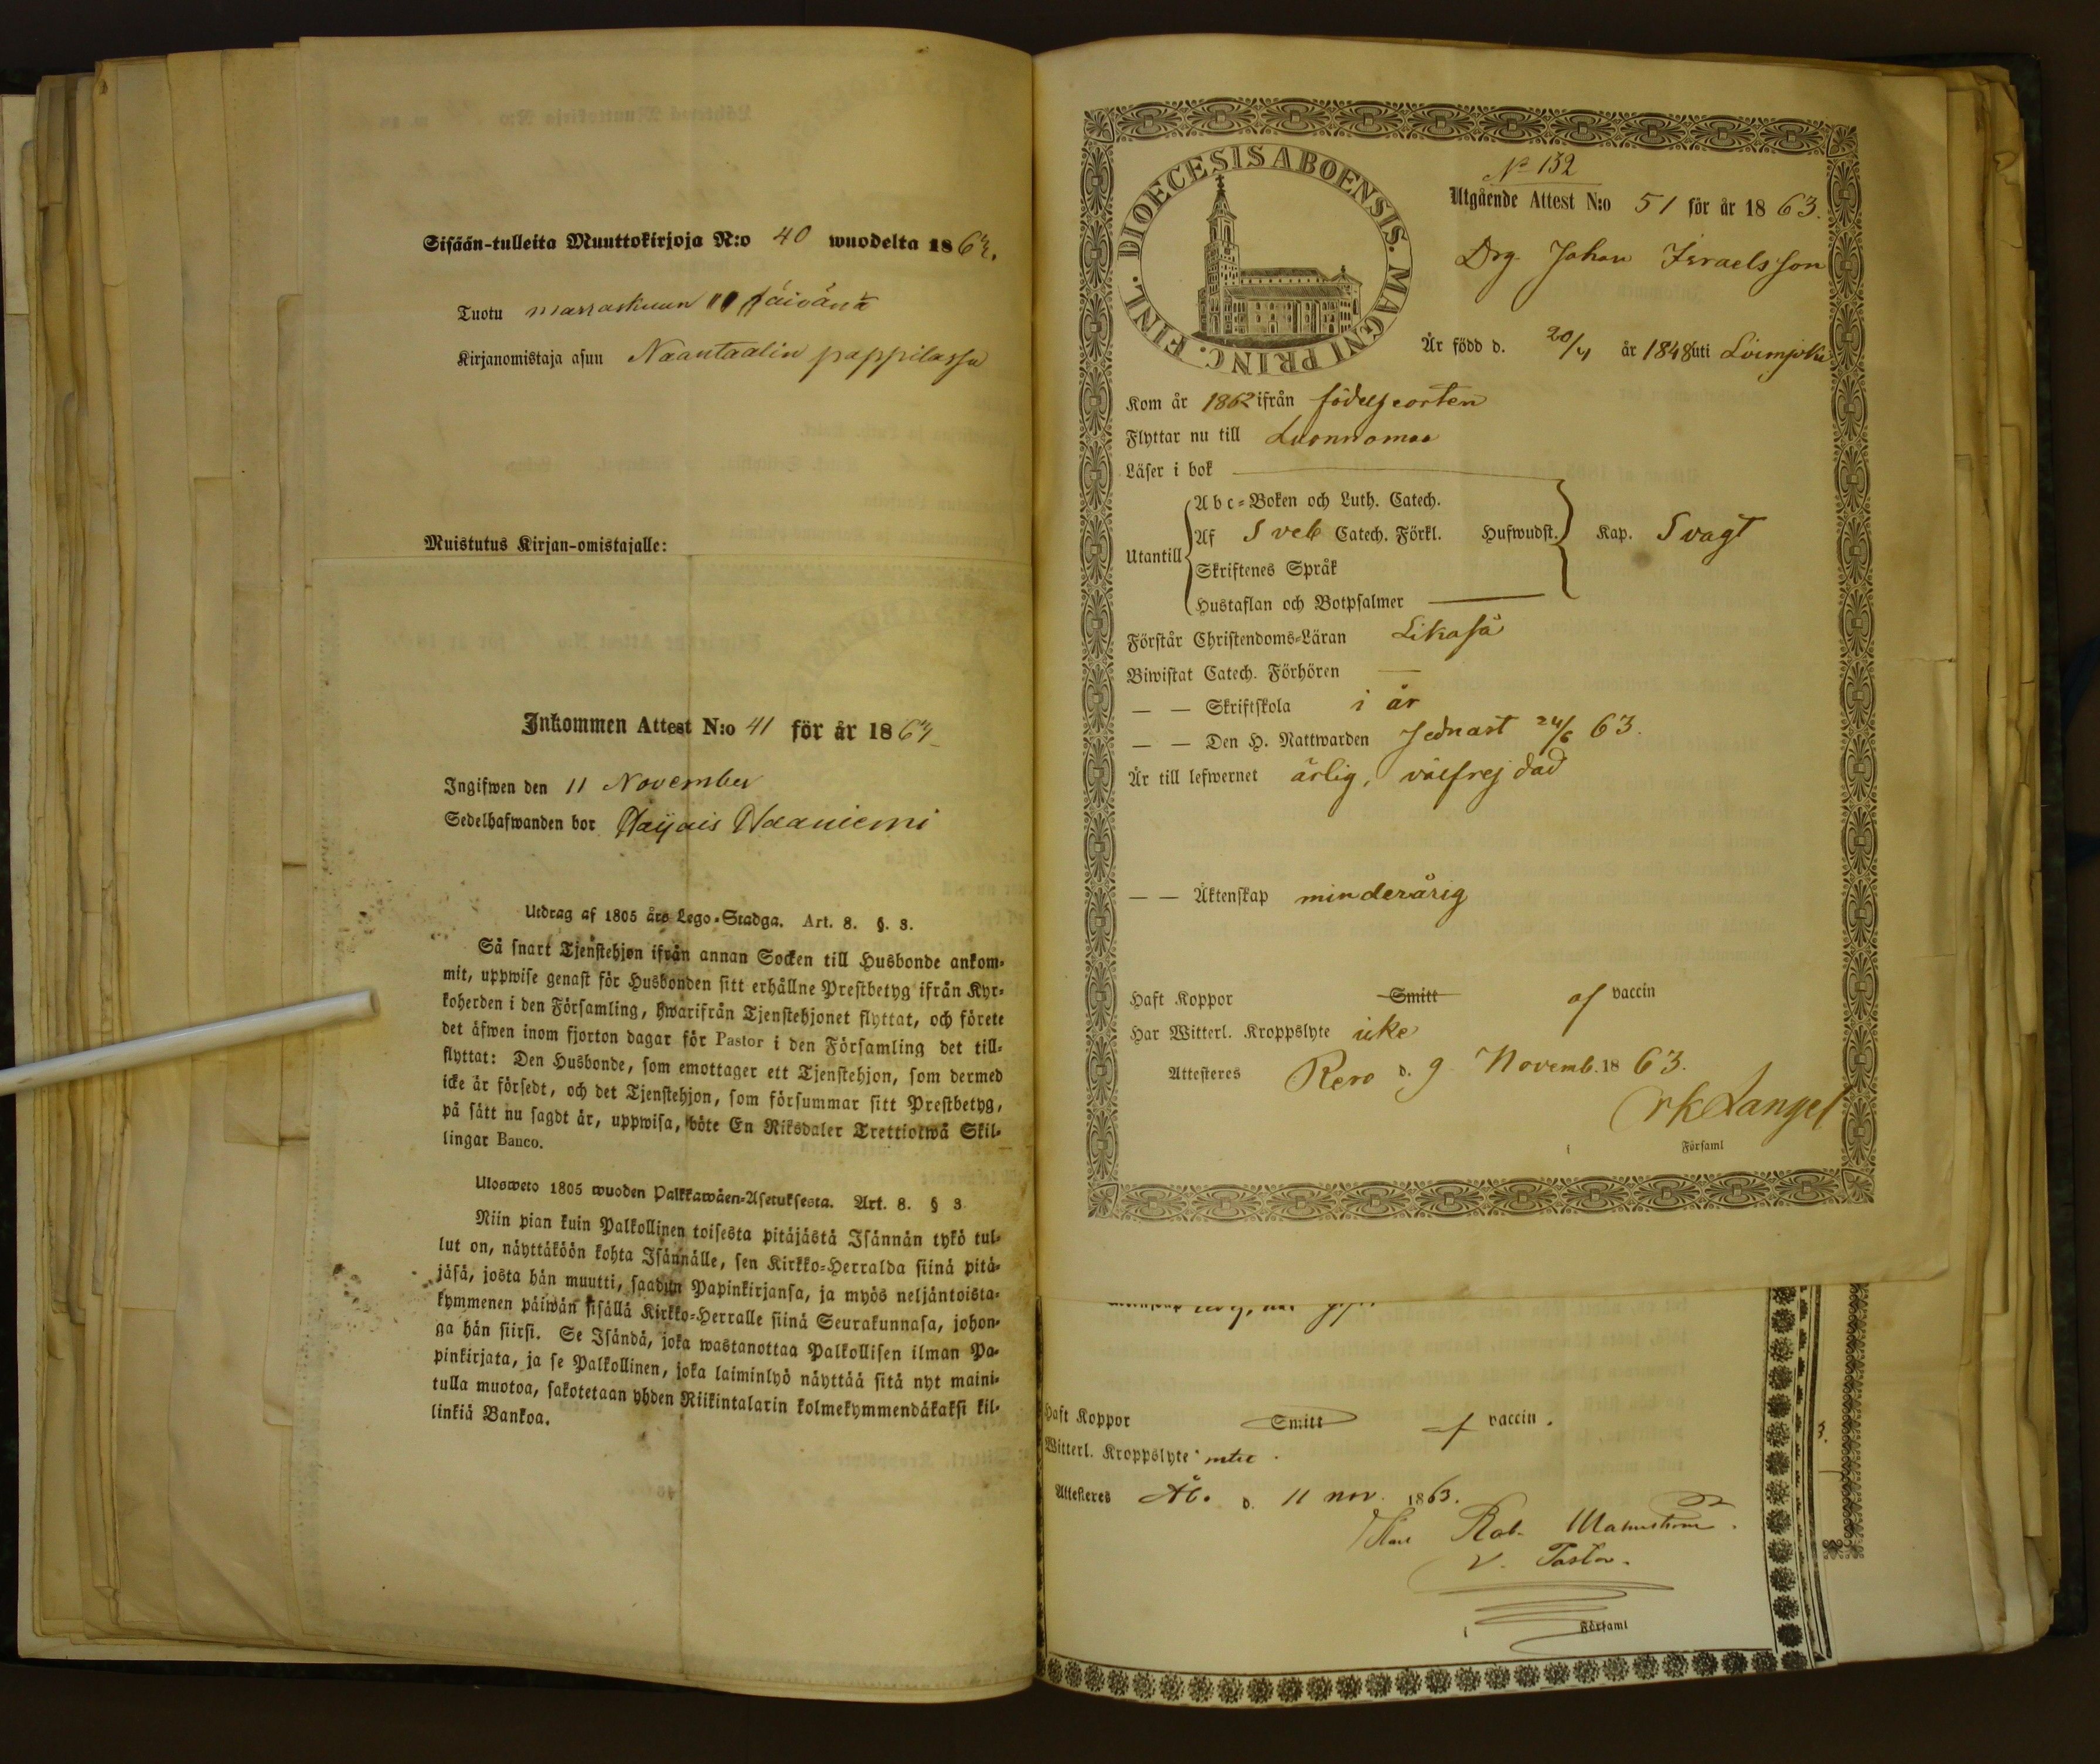 Sisään-tulleita Muuttokirjoja N:o 40 wuodelta 1863.
Tuotu marraskuun 11 päivänä
Kirjanomistaja asuu Naantaalin pappilassa
Muistutus Kirjan-omistajalle:
Inkommen Attest N:o 41 för år 1863
Ingifwen den 11 November
Sedelhafwanden bor
Utdrag af 1805 års Lego-Stadga. Art. 8. §. 3.
Så snart Tjenstehjon ifrån annan Socken till Husbonde ankom-
mit, uppwise genast för Husbonden sitt erhållne Prestbetyg ifrån Kyr-
koherden i den Församling, hwarifrån Tjenstehjonet flyttat, och förete
det äfwen inom fjorton dagar för Pastor i den Församling det till-
flyttat: Den Husbonde, som emottager ett Tjenstehjon, som dermed
icke är försedt, och det Tjenstehjon, som försummar sitt Prestbetyg,
på sätt nu sagdt är, uppwisa, böte En Riksdaler Trettiotwå Skil-
lingar Banco.
Ulosweto 1805 wuoden Palkkawäen-Asetuksesta. Art. 8. § 3
Niin pian kuin Palkollinen toisesta pitäjästä Isännän tykö tul-
lut on, näyttäköön kohta Isännälle, sen Kirkko-Herralda siinä pitä-
jäsä, josta hän muutti, saadun Papinkirjansa, ja myös neljäntoista-
kymmenen päiwän sisällä Kirkko-Herralle siinä Seurakunnasa, johon-
ga hän siirsi. Se Isändä, joka wastanottaa Palkollisen ilman Pa-
pinkirjata, ja se Palkollinen, joka laiminlyö näyttää sitä nyt maini-
tulla muotoa, sakotetaan yhden Riikintalarin kolmekymmendäkaksi kil-
linkiä Bankoa.
FINL. DIOECESIS ABOENSIS. MAGNI PRINC.
No 132
Utgående Attest N:o 51 för år 1863.
Drg Johan Israelsson
Är född d. 20/4 år 1848 uti Loimjoki
Kom år 1862 ifrån födelseorten
Flyttar nu till Luonnomaa
Läser i bok
Utantill
Abc-Boken och Luth. Catech.
Af Sveb Catech. Förkl. Hufwudst. Kap. Svagt
Skriftenes Språk
Hustaflan och Botpsalmer
Förstår Christendoms-Läran Likaså
Biwistat Catech. Förhören —
— — Skriftskola i år
— — Den H. Nattwarden sednast 24/6 63.
Är till lefwernet ärlig, välfrejdad
— — Äktenskap minderårig
Haft Koppor Smitt af vaccin
Har Witterl. Kroppslyte icke
Attesteres Reso d. 9 Novemb. 1863.
Langel
Församl
Haft Koppor Smitt af vaccin.
Witterl. Kroppslyte intet.
Attesteres Åbo d. 11 nov. 1863.
Rob. Malmström.
V. Pastor.
Församl